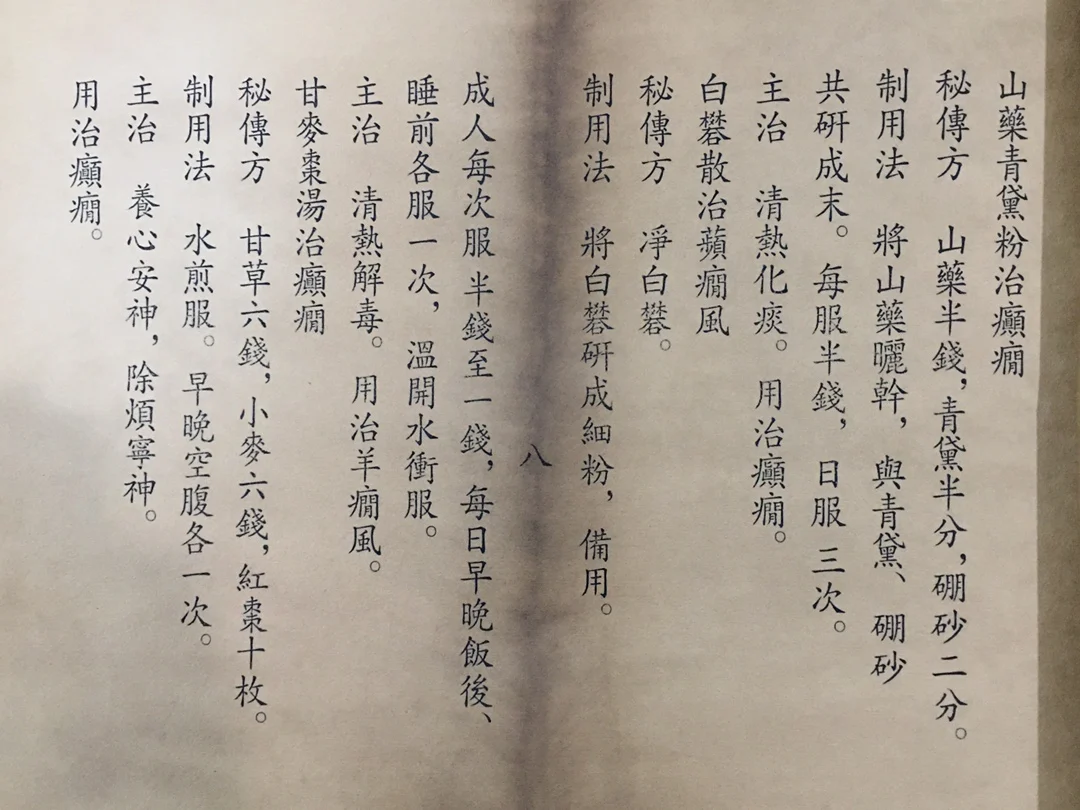 山藥青黛粉治癲癇
秘傳方　山藥半錢，青黛半分，硼砂二分。
制用法　將山藥曬幹，與青黛、硼砂
共研成末。每服半錢，日服三次。
主治　清熱化痰。用治癲癇。
白礬散治蘋癇風
秘傳方　淨白礬。
制用法　將白礬研成細粉，備用。
八
成人每次服半錢至一錢，每日早晚飯後、
睡前各服一次，溫開水衝服。
主治　清熱解毒。用治羊癇風。
甘麥棗湯治癲癇
秘傳方　甘草六錢，小麥六錢，紅棗十枚。
制用法　水煎服。早晚空腹各一次。
主治　養心安神，除煩寧神。
用治癲癇。